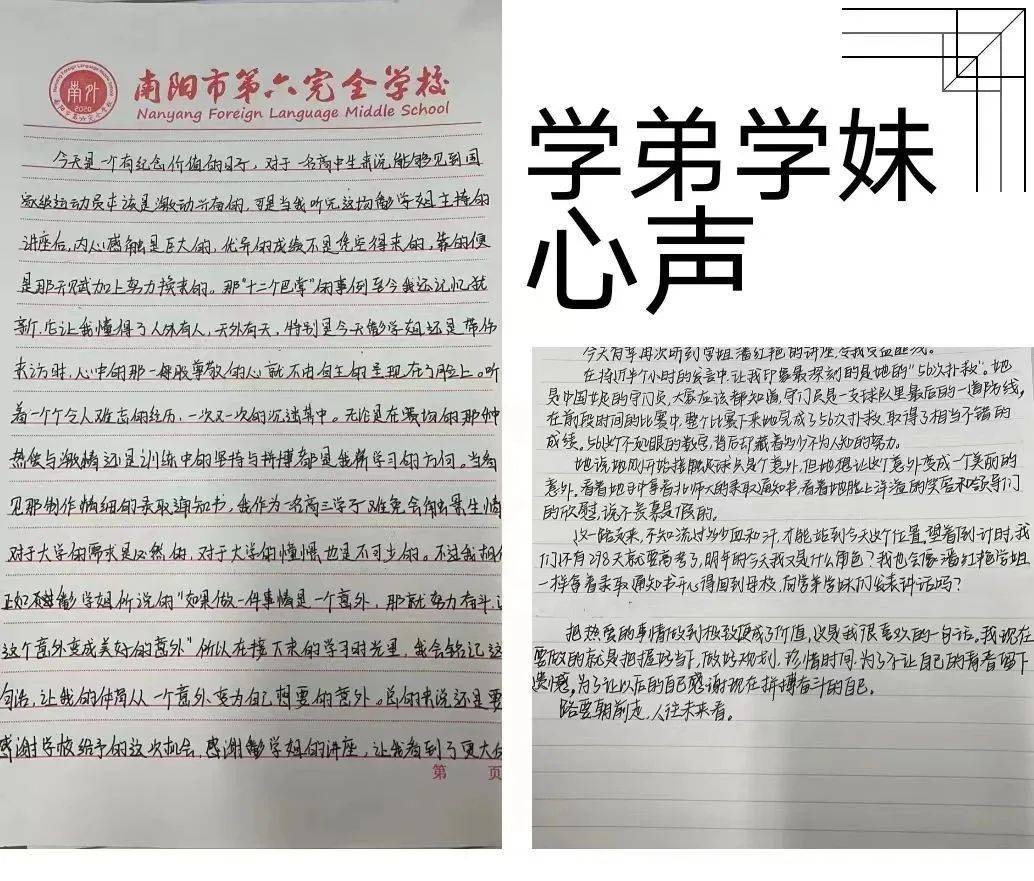 南外
2020
南阳市第六完全学校
Nanyang Foreign Language Middle School
今天是一个有纪念价值的日子，对于一名高中生来说能够见到国
家级运动员应该是激动兴奋的，可是当我听完这场 学姐主持的
讲座后，内心感触是巨大的，优异的成绩不是凭空得来的，靠的便
是那天赋加上努力换来的。那“十二个巴掌”的事例至今我还记忆犹
新，它让我懂得了人外有人，天外有天，特别是今天 学姐还是带伤
来访时，心中的那一母股尊敬的心就不由自主的呈现在了脸上。听
着一个个令人难忘的经历，一次又一次的沉迷其中。无论是在赛场的那种
热侯与激情还是训练中的坚持与拼搏都是我所学习的方向。当看
见那制作精细的录取通知书，我作为一名高三学子难免会触景生情
对于大学的需求是必然的，对于大学的憧憬也是不可少的。不过我相信
正如 学姐所说的“如果做一件事情是一个意外，那就努力奋斗，让
这个意外变成美好的意外”所以在接下来的学习时光里，我会铭记这
句话，让我的 从一个意外变为自己想要的意外。总的来说还是要
感谢学校给予的这次机会，感谢 学姐的讲座，让我看到了更大的
第 页
学弟学妹
心声
今天有幸再次听到学姐潘红艳的讲座，令我受益匪浅。
在将近半个小时的发言中，让我印象最深刻的是她的“56次扑救”。她
是中国女足的守门员，大家应该都知道，守门员是一支球队里最后的一道防线，
在前段时间的比赛中，整个比赛下来她完成了56次扑救，取得了相当不错的
成绩。56这个不起眼的数字，背后却藏着多少不为人知的努力。
她说她刚开始接触足球只是个意外，但她想让这个意外变成一个美丽的
意外。看着她手中拿着北师大的录取通知书，看着她脸上洋溢的笑容和领导们
的欣慰，说不羡慕是假的。
这一路走来，不知流过多少血和汗，才能站到今天这个位置。望着倒计时，我
们还有278天就要高考了，明年的今天我又是什么角色？我也会像潘红艳学姐
一样拿着录取通知书开心得回到母校，向学弟学妹们发表讲话吗？
把热爱的事情做到极致便成了价值，这是我很喜欢的一句话。我现在
要做的就是把握好当下，做好规划，珍惜时间，为了不让自己的青春留下
遗憾，为了让以后的自己感谢现在拼搏奋斗的自己。
路要朝前走，人往未来看。